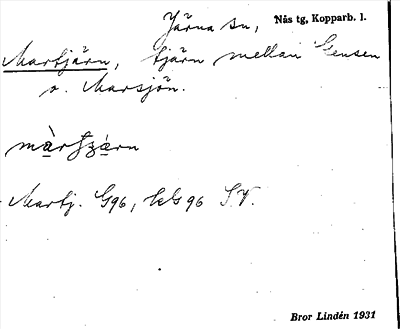 Järna sn, Nås tg, Kopparb. l.
Martjärn, tjärn mellan Gensen
o. Marsjön.
Martj. G96, kG96 S.V.
Bror Lindén 1931